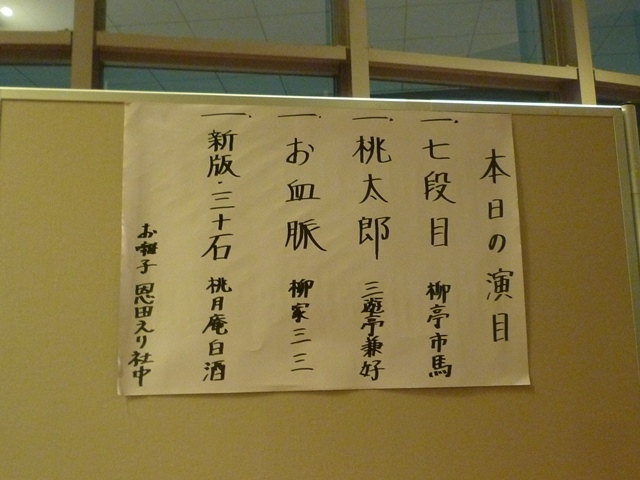 本日の演目
一. 七段目 柳亭市馬
一. 桃太郎 三遊亭兼好
一. お血脈 柳家三三
一. 新版・三十石 桃月庵白酒
お囃子 恩田えり社中